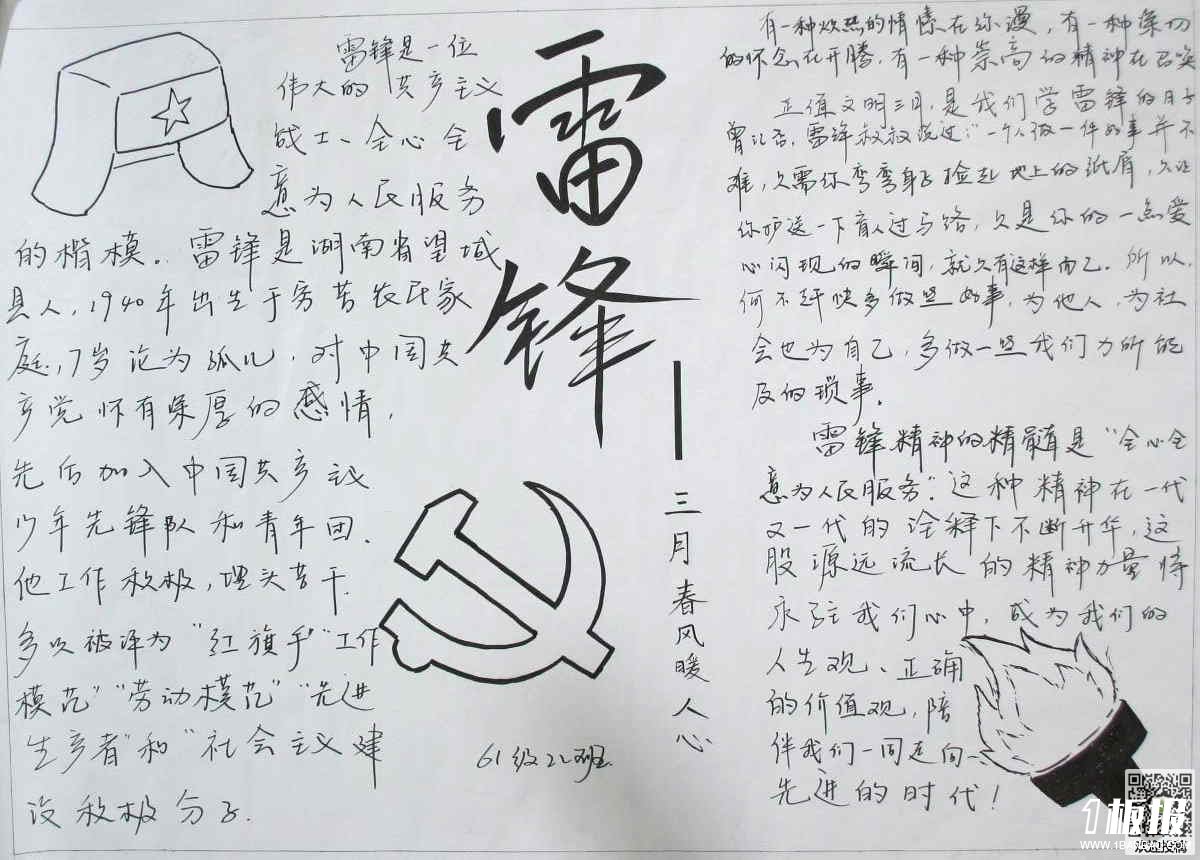 雷锋是一位
伟大的共产主义
战士、全心全
意为人民服务
的楷模。雷锋是湖南省望城
县人,1940年出生于穷苦农民家
庭,7岁沦为孤儿,对中国共
产党怀有深厚的感情,
先后加入中国共产主义
少年先锋队和青年团.
他工作积极,埋头苦干.
多次被评为“红旗手”“工作
模范”“劳动模范”“先进
生产者”和“社会主义建
设积极分子.
雷锋
三月春风暖人心
61级22班
有一种炽热的情愫在弥漫,有一种深切
的怀念在升腾,有一种崇高的精神在召唤
正值文明三月,是我们学雷锋的日子
曾记否,雷锋叔叔说过:“一个人做一件好事并不
难,只需你弯弯身子捡起地上的纸屑,只让
你护送一下盲人过马路,只是你的一点爱
心闪现的瞬间,就只有这样而已.所以,
何不赶快多做些好事,为他人,为社
会也为自己,多做一些我们力所能
及的琐事.
雷锋精神的精髓是“全心全
意为人民服务”.这种精神在一代
又一代的诠释下不断升华,这
股源远流长的精神力量将
永驻我们心中,成为我们的
人生观、正确
的价值观,陪
伴我们一同走向
先进的时代!
1板报
WWW.1BANBAO.COM
欢迎投稿